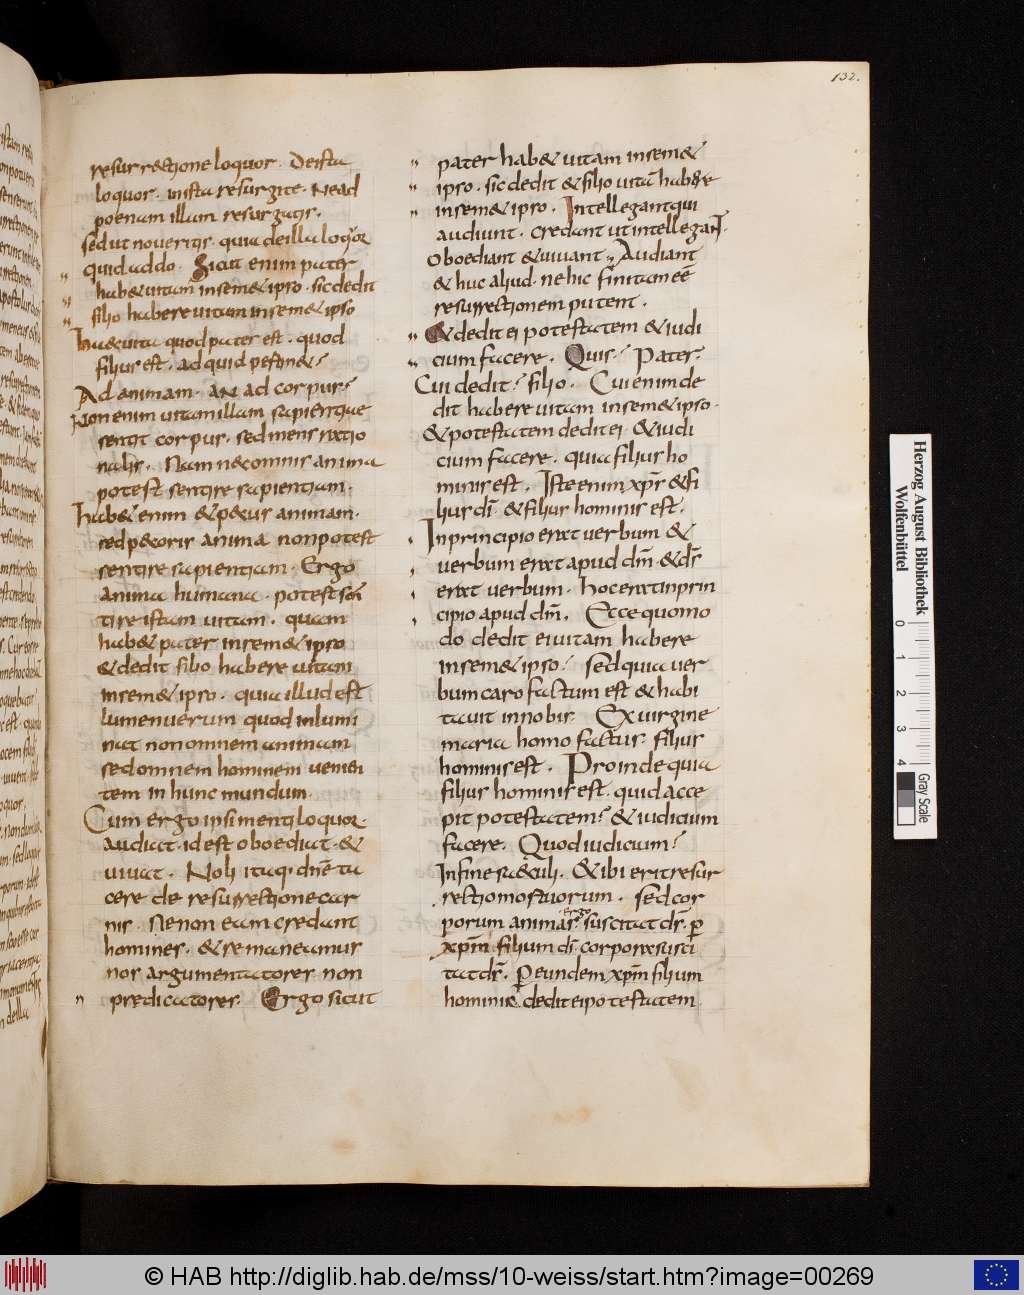 132.
resurrectione loquor. De ista
loquor. in ista resurgite. Ne ad
poenam illam resurgatis.
Sed ut noveritis. quia de illa loquor
quid addo. Sicut enim pater
hab& vitam in sem&ipso. sic dedit
filio habere vitam in sem&ipso
Haec vita quod pater est. quod
filius est. ad quid pertin&?
Ad animam. an ad corpus?
Non enim vitam illam sapientiae
sentit corpus. sed mens ratio
nalis. Nam nec omnis anima
potest sentire sapientiam.
Hab& enim & pecus animam.
sed pecoris anima non potest
sentire sapientiam. Ergo
anima humana. potest sen
tire istam vitam. quam
hab& pater in sem&ipso
& dedit filio habere vitam
in sem&ipso. quia illud est
lumen verum quod inlumi
nat non omnem animam
sed omnem hominem venien
tem in hunc mundum.
Cum ergo ipsi menti loquor.
audiat. id est oboediat. &
vivat. Noli itaq. dne ta
cere de resurrectione car
nis. Ne non eam credant
homines. & remaneamus
nos argumentatores non
predicatores. Ergo sicut
pater hab& vitam in sem&
ipso. sic dedit & filio vitā habere
in sem&ipso. Intellegant qui
audiunt. credant ut intellegant.
Oboediant & vivant. Audiant
& huc aliud. ne hic finitam eē
resurrectionem putent.
& dedit ei potestatem & iudi
cium facere. Quis? Pater?
Cui dedit? filio. Cui enim de
dit habere vitam in sem&ipso.
& potestatem dedit ei. & iudi
cium facere. quia filius ho
minis est. Iste enim xp̄s & fi
lius dī. & filius hominis est.
In principio erat verbum &
verbum erat apud dm̄. & ds̄
erat verbum. Hoc erat in prin
cipio apud dm̄. Ecce quomo
do dedit ei vitam habere
in sem&ipso? sed quia ver
bum caro factum est & habi
tavit in nobis. Ex virgine
maria homo factus. filius
hominis est. Proinde quia
filius hominis est. quid acce
pit potestatem? & iudicium
facere. Quod iudicium?
In fine saeculi. & ibi erit resur
rectio mortuorum. sed cor
porum animas ergo suscitat ds̄. p̱
xp̄m filium dī. corpora susci
tat ds̄. p̱ eundem xp̄m filium
hominis. dedit ei potestatem
Herzog August Bibliothek
Wolfenbüttel
0 1 2 3 4
Gray Scale
© HAB http://diglib.hab.de/mss/10-weiss/start.htm?image=00269